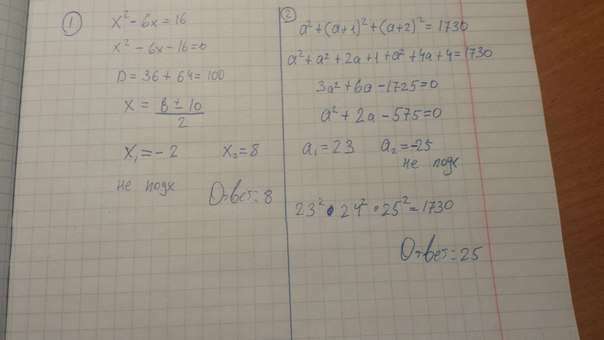 ①
x² - 6x = 16
x² - 6x - 16 = 0
D = 36 + 64 = 100
x = 6 ± 10 / 2
x₁ = - 2 x₂ = 8
не подх
Ответ: 8
②
a² + (a+1)² + (a+2)² = 1730
a² + a² + 2a + 1 + a² + 4a + 4 = 1730
3a² + 6a - 1725 = 0
a² + 2a - 575 = 0
a₁ = 23 a₂ = -25
не подх
23² • 24² • 25² = 1730
Ответ: 25